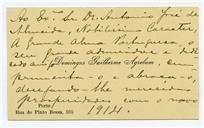 Ao Ex.mo Sr. Dr. Antonio José de
Almeida, Nobilissimo Caracter,
A grande Alma Portuguesa, o
seu grande admirador e
Domingos Guilherme Agrellos
e abraça-o,
desejando-lhe merecidas
prosperidades com o novo
1914.
Porto,
Rua do Pinto Bessa,